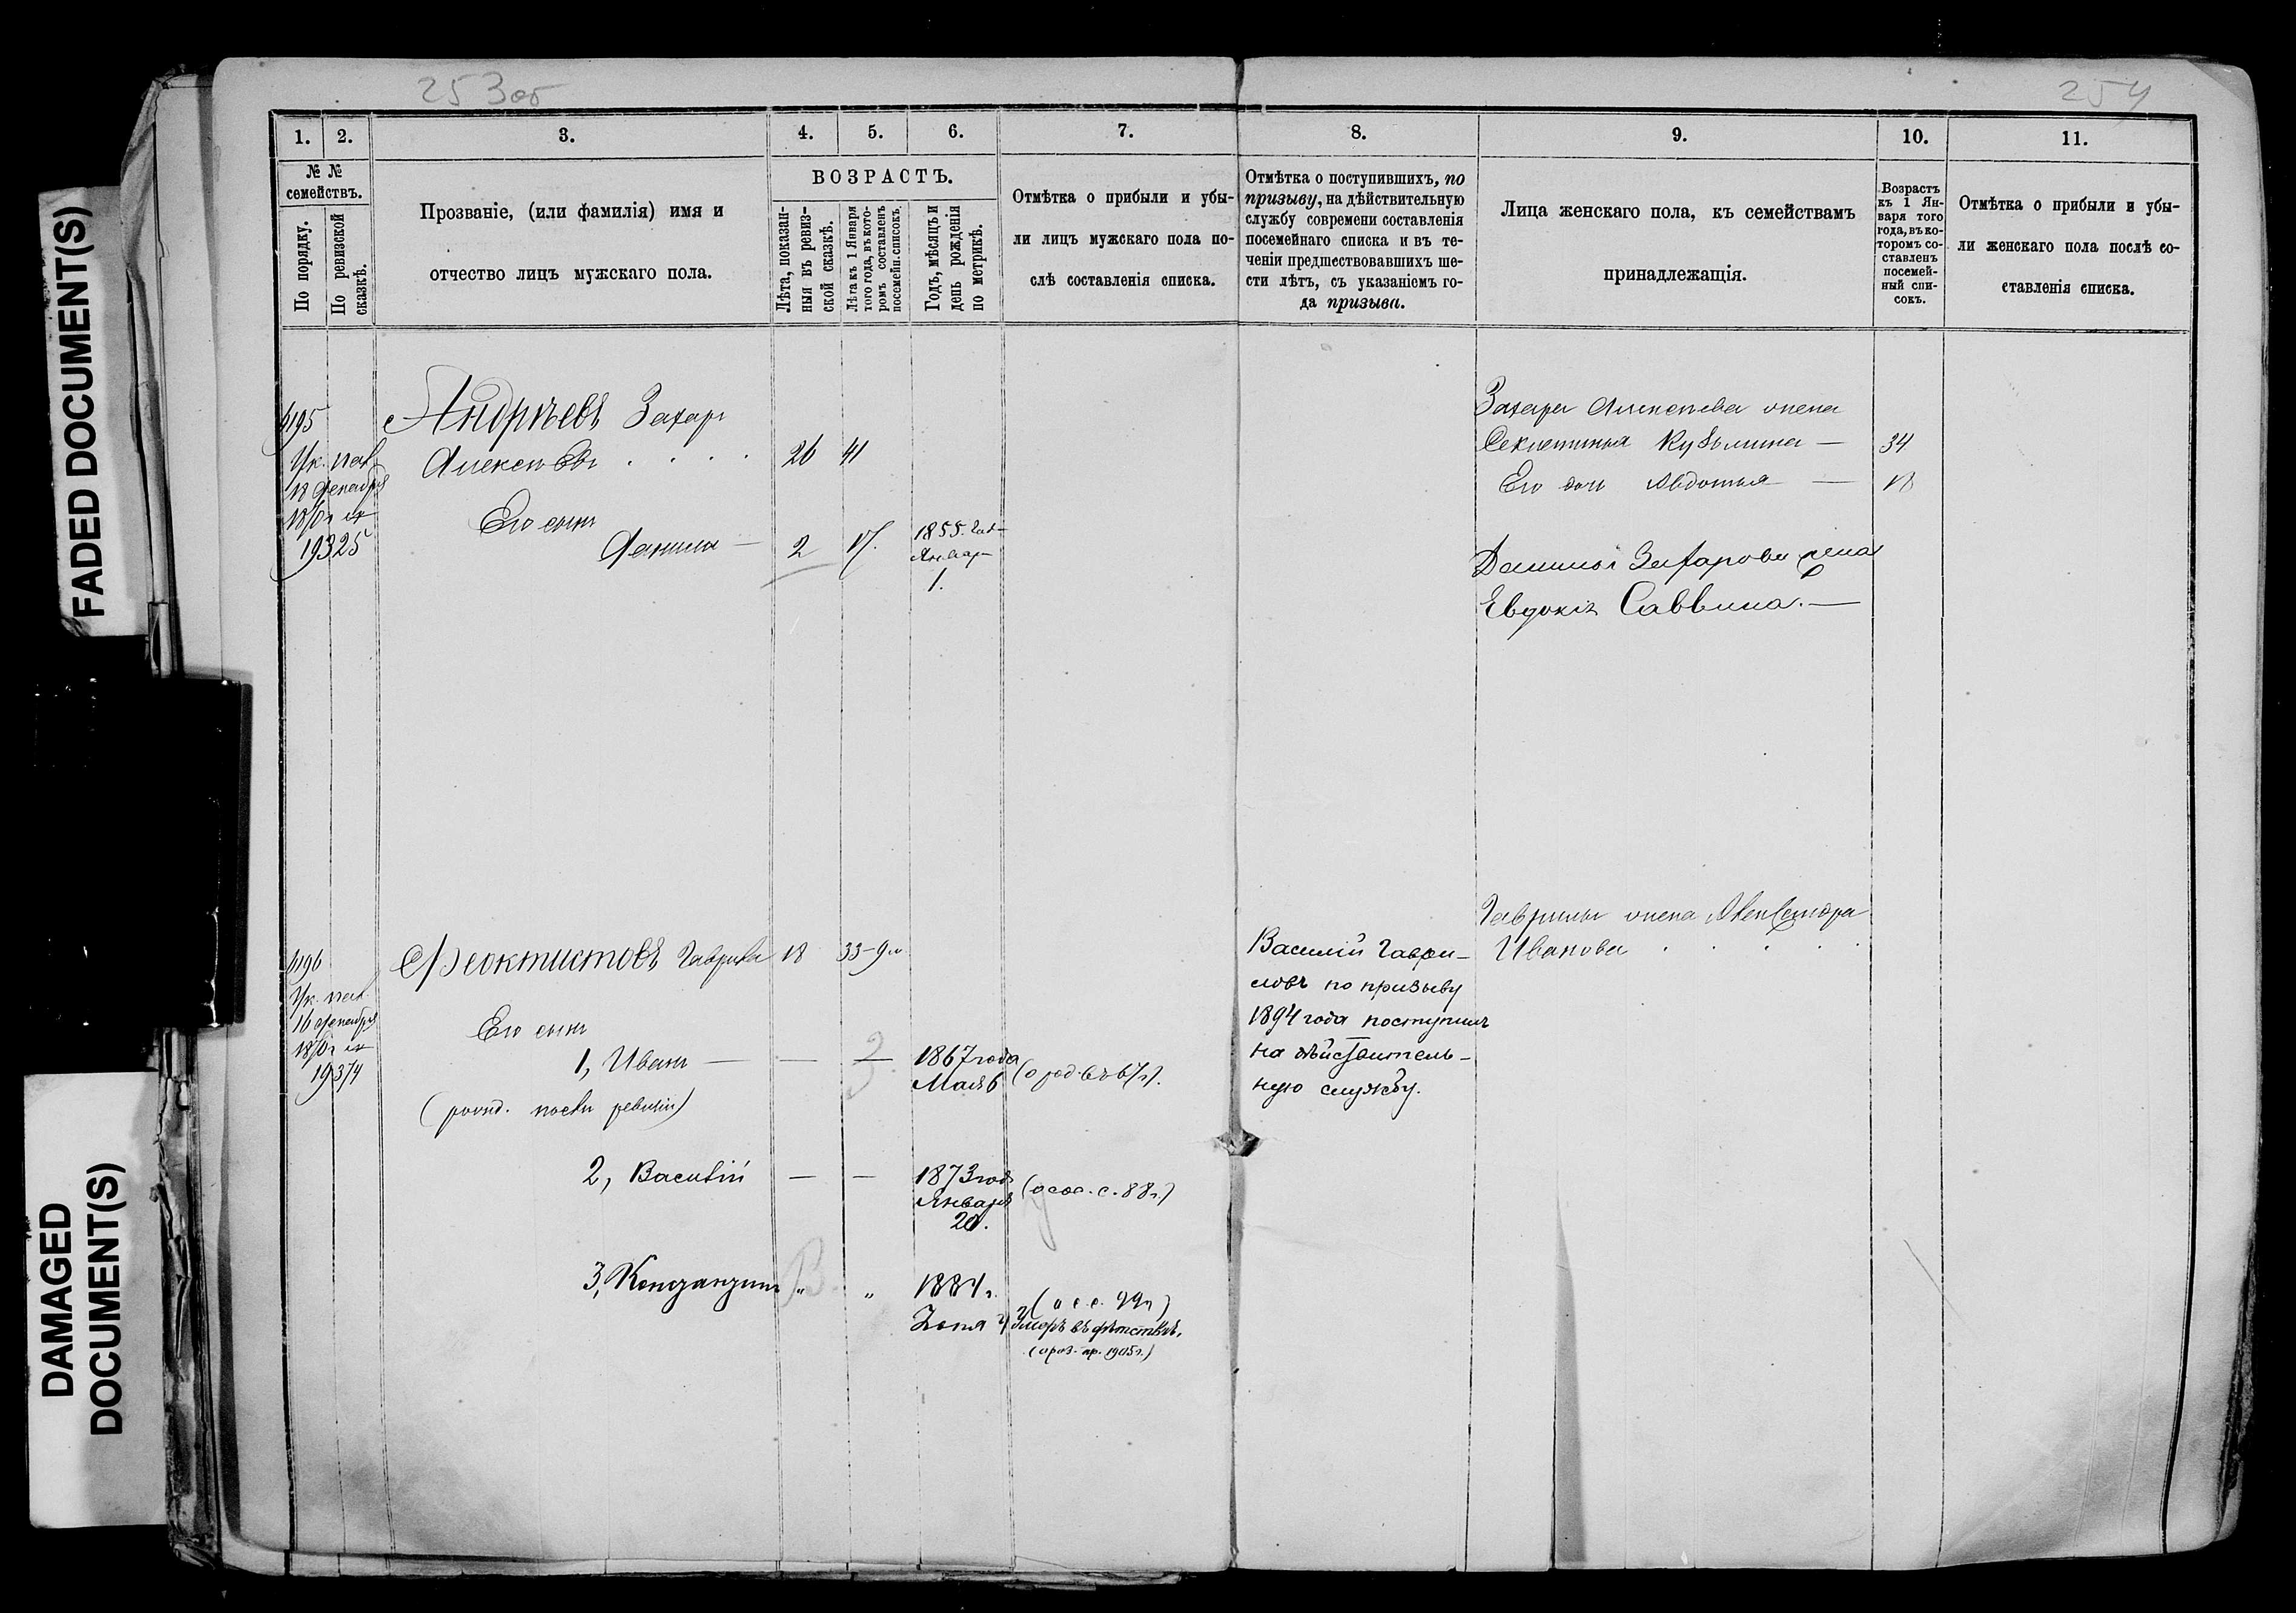 FADED DOCUMENT(S)
DAMAGED
DOCUMENT(S)
253об
254
1.
2.
3.
4.
5.
6.
7.
8.
9.
10.
11.
№ №
семействъ.
По порядку.
По ревизской
сказкѣ.
Прозваніе, (или фамилія) имя и
отчество лицъ мужскаго пола.
ВОЗРАСТЪ.
Лѣта, показан-
ныя въ ревиз-
ской сказкѣ.
Лѣта къ 1 Января
того года, въ кото-
ромъ составленъ
посемейн. списокъ.
Годъ, мѣсяцъ и
день рожденія
по метрикѣ.
Отмѣтка о прибыли и убы-
ли лицъ мужскаго пола по-
слѣ составленія списка.
Отмѣтка о поступившихъ, по
призыву, на дѣйствительную
службу современи составленія
посемейнаго списка и въ те-
ченіи предшествовавшихъ ше-
сти лѣтъ, съ указаніемъ го-
да призыва.
Лица женскаго пола, къ семействамъ
принадлежащія.
Возрастъ
къ 1 Ян-
варя того
года, въ ко-
торомъ со-
ставленъ
посемей-
ный спи-
сокъ.
Отмѣтка о прибыли и убы-
ли женскаго пола послѣ со-
ставленія списка.
Андрѣевъ Захаръ
Алексѣевъ . . . . 26 41
Его сынъ
Данила — 2 17. 1855.
Январ-
1.
19325
Захара Алексѣева жена
Секлетинья Кузьмина — 34
Его дочь Авдотья — 18
Данилы Захарова жена
Евдокія Саввина. —
Феоктистовъ Гаврила 18 33
19374
Его сынъ
1, Иванъ — — — 1867 года
Мая 6
(рожд. послѣ ревизіи)
2, Василій — — 1873 года
Января
20.
3, Константинъ „ „ 1884 г.
Умеръ въ дѣтствѣ.
(пр. 1905 г.)
Василій Гаври-
ловъ по призыву
1894 года поступилъ
на дѣйствитель-
ную службу.
Гаврилы жена Александра
Иванова . . . .